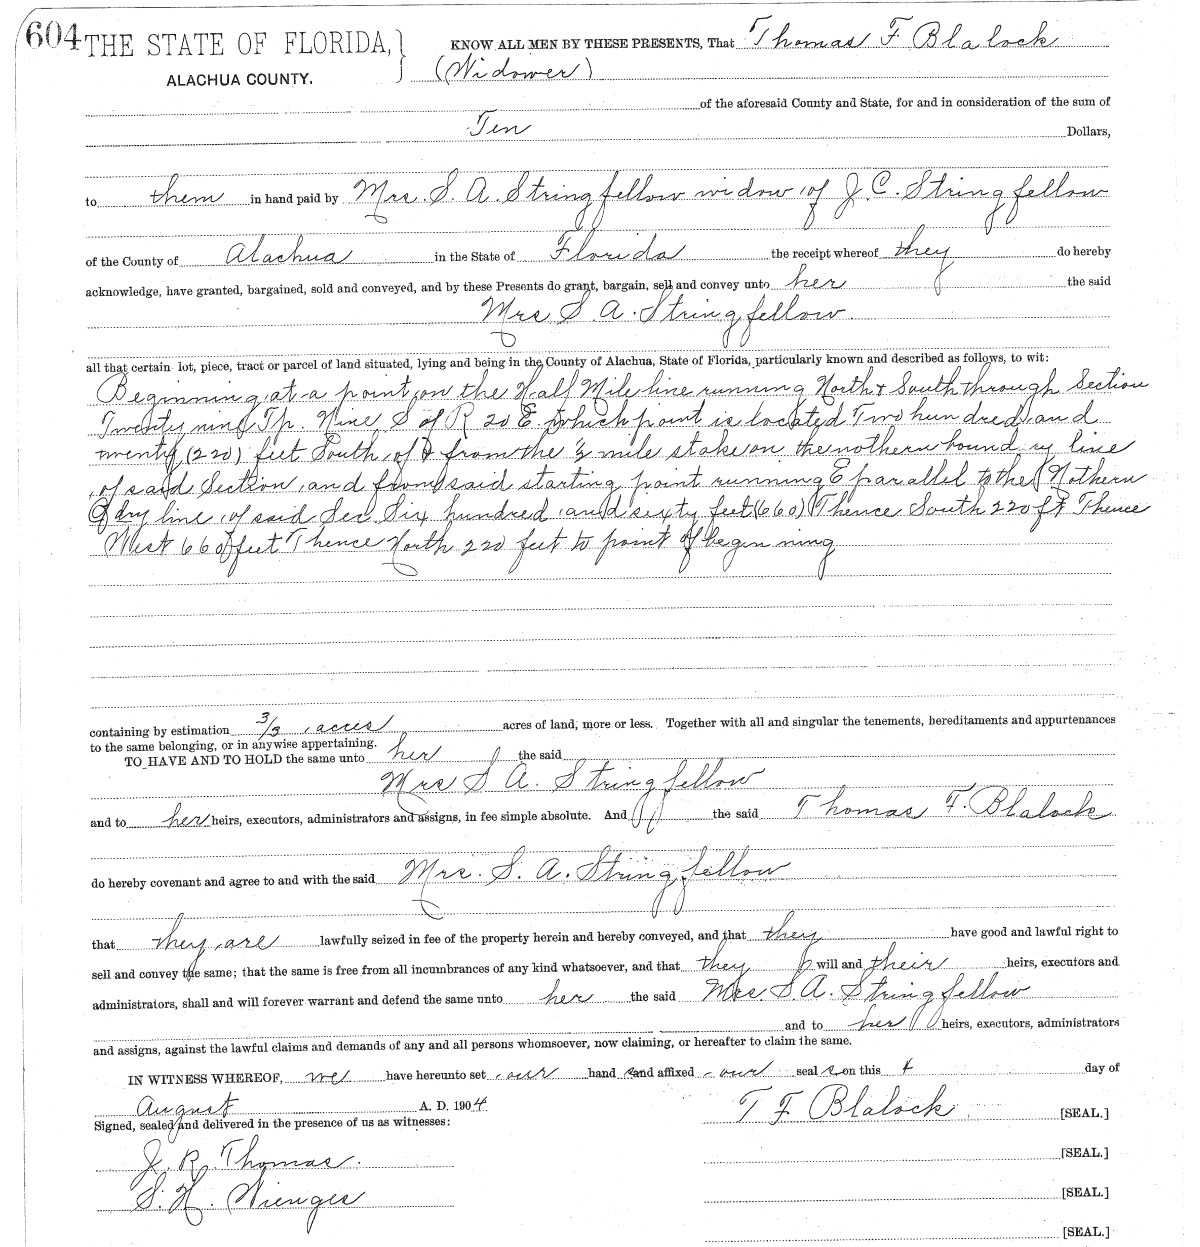 604 THE STATE OF FLORIDA, } KNOW ALL MEN BY THESE PRESENTS, That Thomas F Blalock
ALACHUA COUNTY. (Widower)
of the aforesaid County and State, for and in consideration of the sum of
Ten Dollars,
to them in hand paid by Mrs. S. A. Stringfellow widow of J. C. Stringfellow
of the County of Alachua in the State of Florida the receipt whereof they do hereby
acknowledge, have granted, bargained, sold and conveyed, and by these Presents do grant, bargain, sell and convey unto her the said
Mrs S A. Stringfellow.
all that certain lot, piece, tract or parcel of land situated, lying and being in the County of Alachua, State of Florida, particularly known and described as follows, to wit:
Beginning at a point on the Half Mile line running North & South through Section
Twenty nine Tp. Nine S of R 20 E which point is located Two hundred and
twenty (220) feet South of & from the ½ mile stake on the nothern boundry line
of said Section and from said starting point running E parallel to the Nothern
Bdry line of said Sec Six hundred and sixty feet (660) Thence South 220 ft Thence
West 660 feet Thence North 220 feet to point of beginning
containing by estimation 3/3 acres acres of land, more or less. Together with all and singular the tenements, hereditaments and appurtenances
to the same belonging, or in anywise appertaining.
TO HAVE AND TO HOLD the same unto her the said
Mrs S A. Stringfellow
and to her heirs, executors, administrators and assigns, in fee simple absolute. And the said Thomas F. Blalock
do hereby covenant and agree to and with the said Mrs. S. A. Stringfellow
that they are lawfully seized in fee of the property herein and hereby conveyed, and that they have good and lawful right to
sell and convey the same; that the same is free from all incumbrances of any kind whatsoever, and that they will and their heirs, executors and
administrators, shall and will forever warrant and defend the same unto her the said Mrs. S A. Stringfellow
and to her heirs, executors, administrators
and assigns, against the lawful claims and demands of any and all persons whomsoever, now claiming, or hereafter to claim the same.
IN WITNESS WHEREOF, we have hereunto set our hand s and affixed our seal s on this 4 day of
August A. D. 1904 T F Blalock [SEAL.]
Signed, sealed and delivered in the presence of us as witnesses:
J. R. Thomas. [SEAL.]
S. H. Wienges [SEAL.]
[SEAL.]